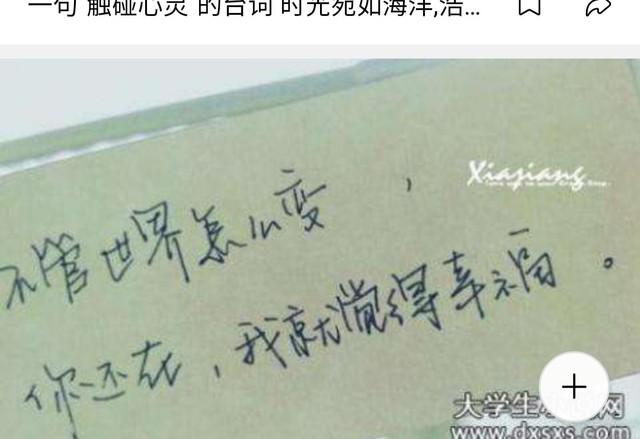 一句"触碰心灵"的台词 时光宛如海洋,浩...
Xiaxiang
不管世界怎么变，
你还在，我就觉得幸福。
大学生小
网
www.dxsxs.com